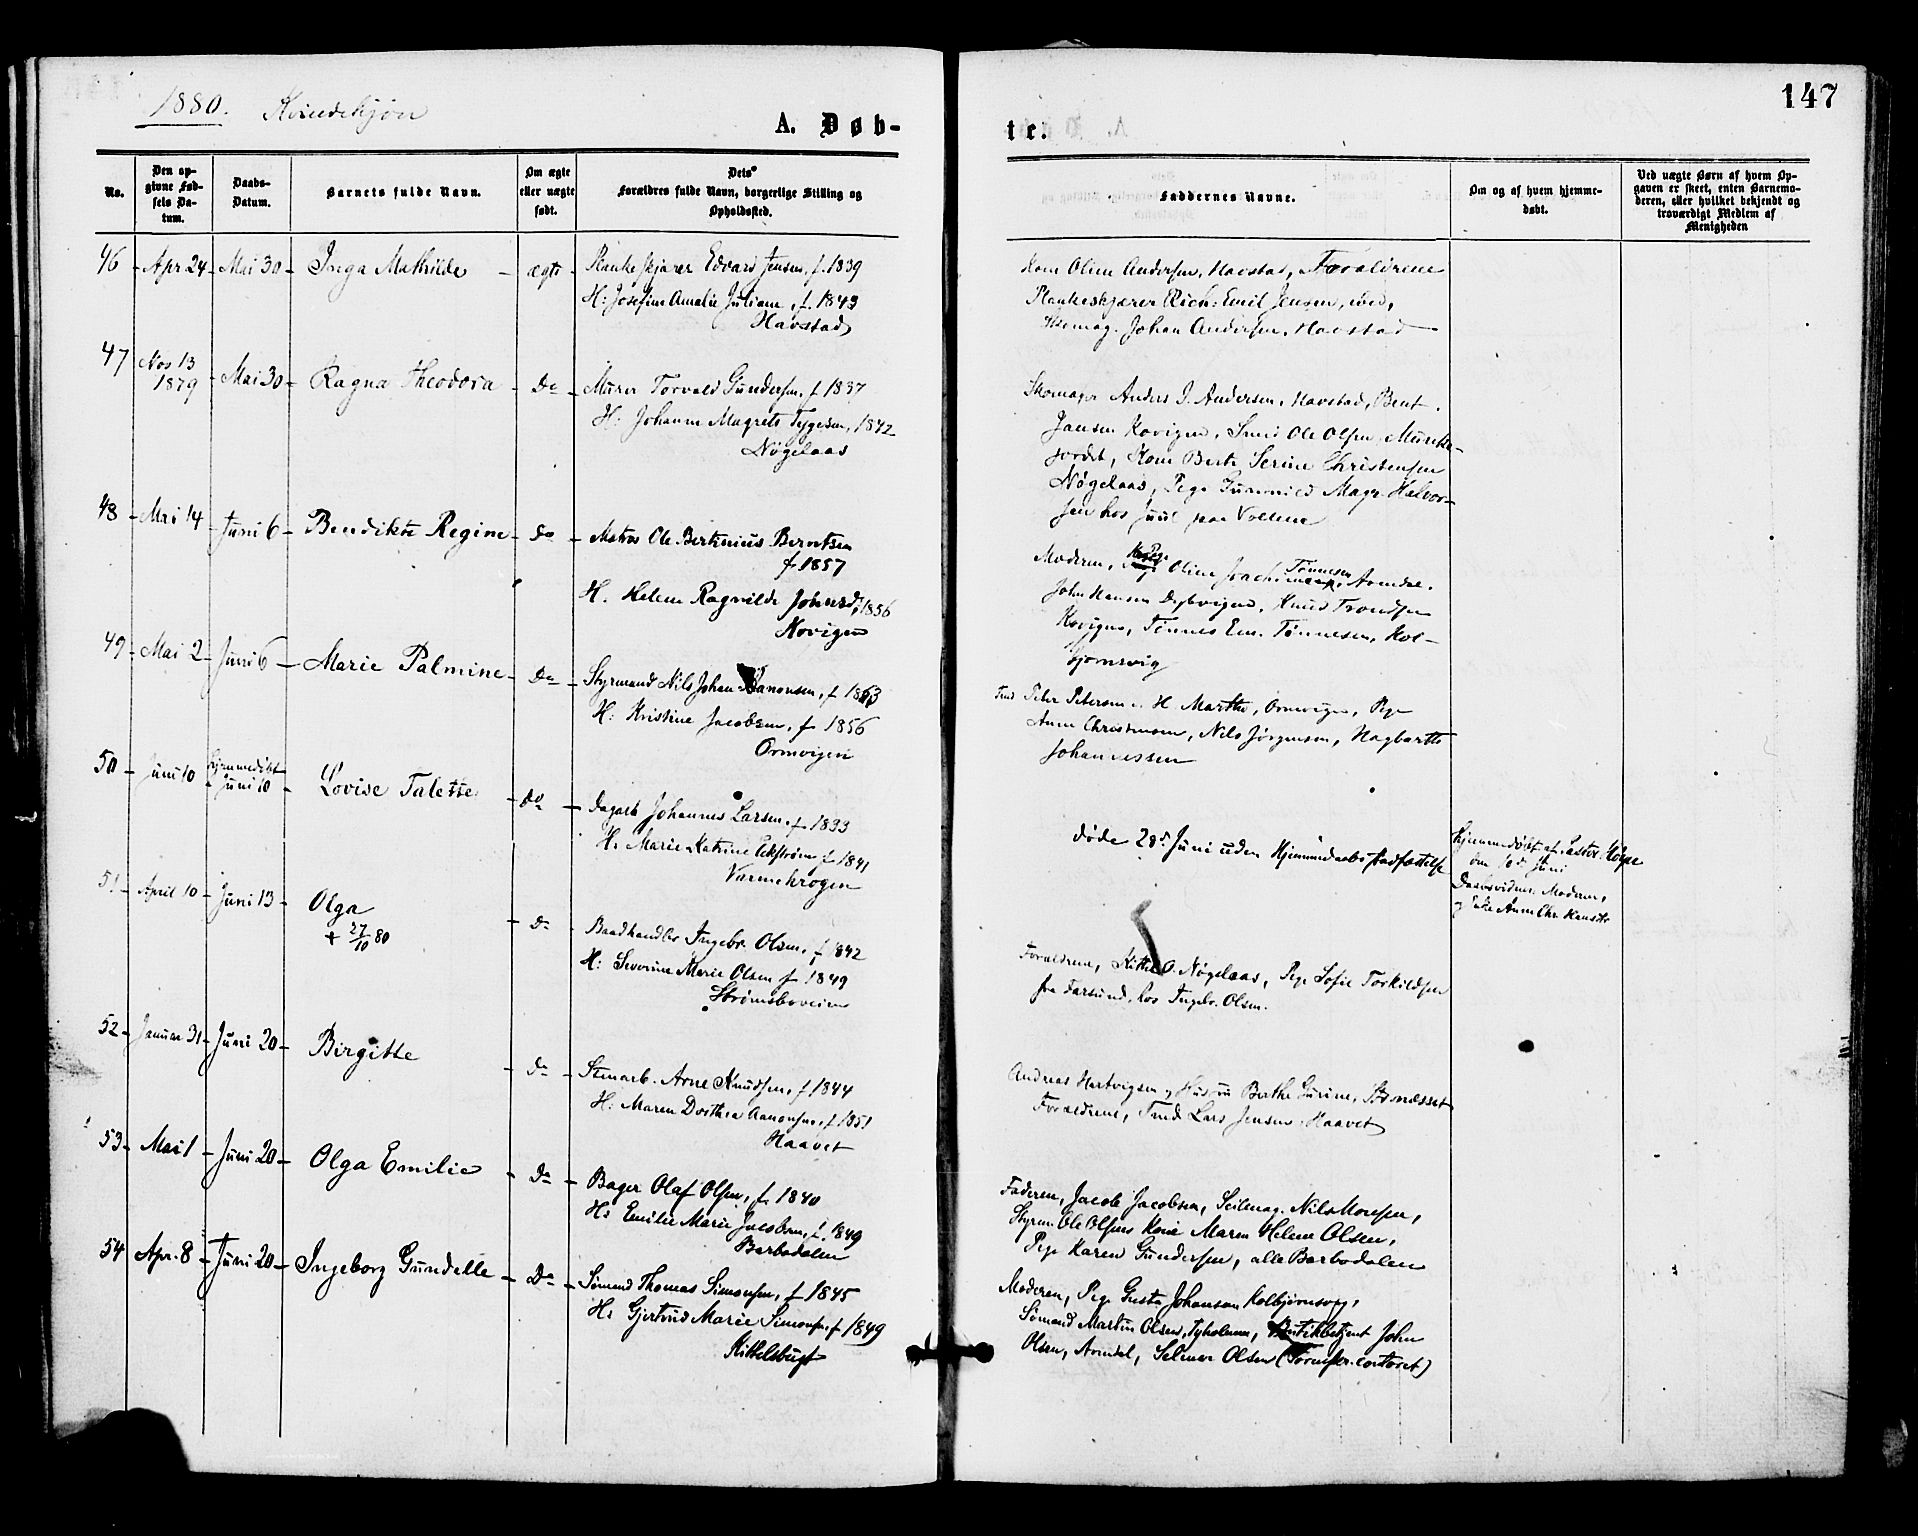 1880. Kvindekjøn
147
A. Døb-
te.
No.
Den op-
givne Fød-
sels Da-
tum.
Daabs-
Datum.
Barnets fulde Navn.
Om ægte
eller uægte
født.
Dets
Forældres fulde Navn, borgerlige Stilling og
Opholdssted.
Faddernes Navne.
Om og af hvem hjemme-
døbt.
Ved uægte Børn af hvem Op-
gaven er skeet, enten Barnemo-
deren, eller hvilket bekjendt og
troværdigt Medlem af
Menigheden
46 Apr 24 Mai 30 Inga Mathilde ægte Plankeskjærer Edvard Jensen, f. 1839
H: Josefine Amalie Juliane, f. 1843
Havstad
Kone Oline Andersen, Havstad, Forældrene
Plankeskjærer Rich: Emil Jensen, ibid,
Johan Andersen, Havstad
47 Nov 13
1879 Mai 30 Ragna Theodora Do Murer Torvald Gundersen, f 1837
H: Johanne Magrete Tygesen, 1842
Nøgelaas
Skomager Anders J. Andersen, Havstad, Bent
Jansen Kovigen, Smed Ole Olsen, Munke-
jordet, Kone Berte Serine Christensen
Nøgelaas, Pige Gunnild Magr. Halvor-
sen hos Juul paa Vollene
48 Mai 14 Juni 6 Bendikte Regine Do Matros Ole Bertinius Berntsen
f 1857
H. Helene Ragnilde Johnsd., 1856
Kovigen
Moderen, Pige Oline Tønnesen, Arendal.
John Hansen Dybvigen, Knud Trondsen
Kovigen, Tønnes Em. Tønnesen, Kol-
bjornsvig
49 Mai 2 Juni 6 Marie Palmine Do Styrmand Nils Johan Aanonsen, f 1853
H: Kristine Jacobsen, f 1856
Ormvigen
Peter Petersen o. H Marthe, Ormvigen, Pige
Anne Christensen, Nils Jørgensen, Hagbarth
Johannessen
50 Juni 10 Hjemmedøbt
Juni 10 Lovise Talette Do Dagarb Johannes Larsen, f 1833
H. Marie Katrine Ekstrøm f 1841
Varmekrogen
døde 28de Juni uden Hjemmedaabs stadfæstelse
Hjemmedøbt af Pastor
den 10de Juni
Daabsvidner: Moderen,
og Enke Anne Chr.
51 April 10 Juni 13 Olga
+ 27/10 80 Do Baadhandler Ingebr Olsen, f 1842
H: Severine Marie Olsen f 1849
Strømsboveien
Forældrene, Kittel O. Nøgelaas, Pige Sofie Torkildsen
fra Farsund, hos Ingebr. Olsen.
52 Januar 31 Juni 20 Birgitte Do Stenarb. Arne Knudsen, f 1844
H: Maren Dorthea Aanonsen, f 1851
Haavet
Andreas Hartvigsen og Hustru Berthe Gurine,
Forældrene, Lars Jensen Haavet
53 Mai 1 Juni 20 Olga Emilie Do Bager Olaf Olsen, f. 1840
H: Emilie Marie Jacobsen, f. 1849
Barbodalen
Faderen, Jacob Jacobsen, Seilmag. Nils Monsen,
Styrm. Ole Olsens Kone Maren Helene Olsen,
Pige Karen Gundersen, alle Barbodalen
54 Apr. 8 Juni 20 Ingeborg Gundelle Do Sømand Thomas Simonsen, f 1845
H: Gjertrud Marie Simonsen, f 1849
Kittelsbugt
Moderen, Pige Gusta Johansen Kolbjørnsvig,
Sømand Martin Olsen, Tyholmen, Butikbetjent John
Olsen, Arendal, Selmer Olsen